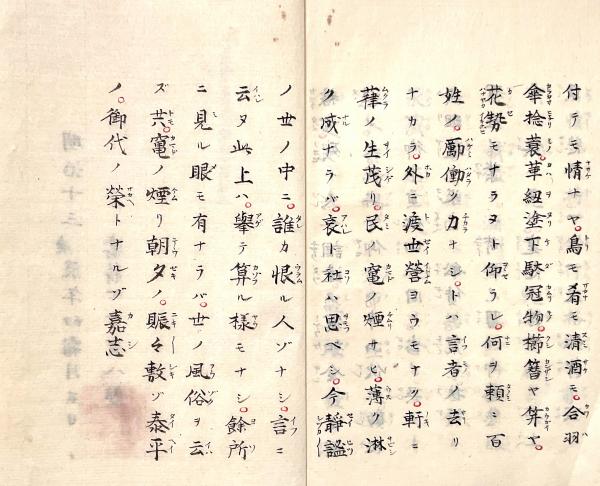 付テモ情ナヤ。鳥モ肴モ清酒モ。合羽
傘捻蓑。革紐塗下駄冠物。櫛簪ヤ笄ヤ。
花勢モサラヲト仰ラレ。何ヲ頼ニ百
姓ノ。励働ク力ナシ。トハ言者ノ去リ
ナカラ。外ニ渡世営ヨウモナク。軒ニ
葎ノ生茂リ。民ノ竃ノ煙サヒ。薄ク淋
ク成ナラバ。哀ト社ハ思ベシ。今静謐
ノ世ノ中ニ。誰カ恨ル人ゾナシ。言ニ
云タ此上ハ。挙テ算ル様モナシ。餘所
ニ見ル眼モ有ナラバ。世ノ風俗ヲ云
ズ共。竃ノ煙リ朝夕ノ。賑々敷ゾ泰平
ノ。御代ノ榮トナルゾ嘉志